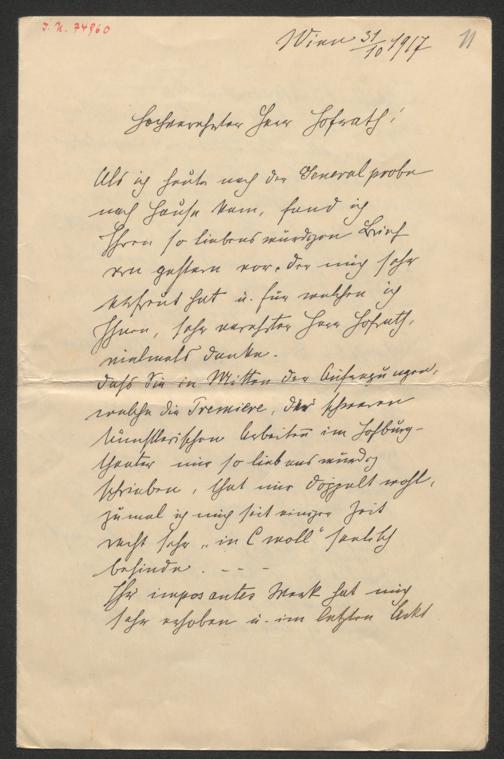 J. N. 74960
Wien 31/10 1917
11
Hochverehrter Herr Hofrath!
Als ich heute nach der Generalprobe
nach Hause kam, fand ich
Ihren so liebenswürdigen Brief
von gestern vor, der mich sehr
erfreut hat u. für welchen ich
Ihnen, sehr verehrter Herr Hofrath,
vielmals danke.
Dass Sie in Mitten der Aufregungen,
welche die Premiere, der schweren
künstlerischen Arbeiten im Hofburg-
theater mir so liebenswürdig
schrieben, that mir doppelt wohl,
zumal ich mich seit einiger Zeit
recht sehr „in C moll“ seelisch
befinde. - - -
Ihr imposantes Werk hat mich
sehr erhoben u. im letzten Ackt